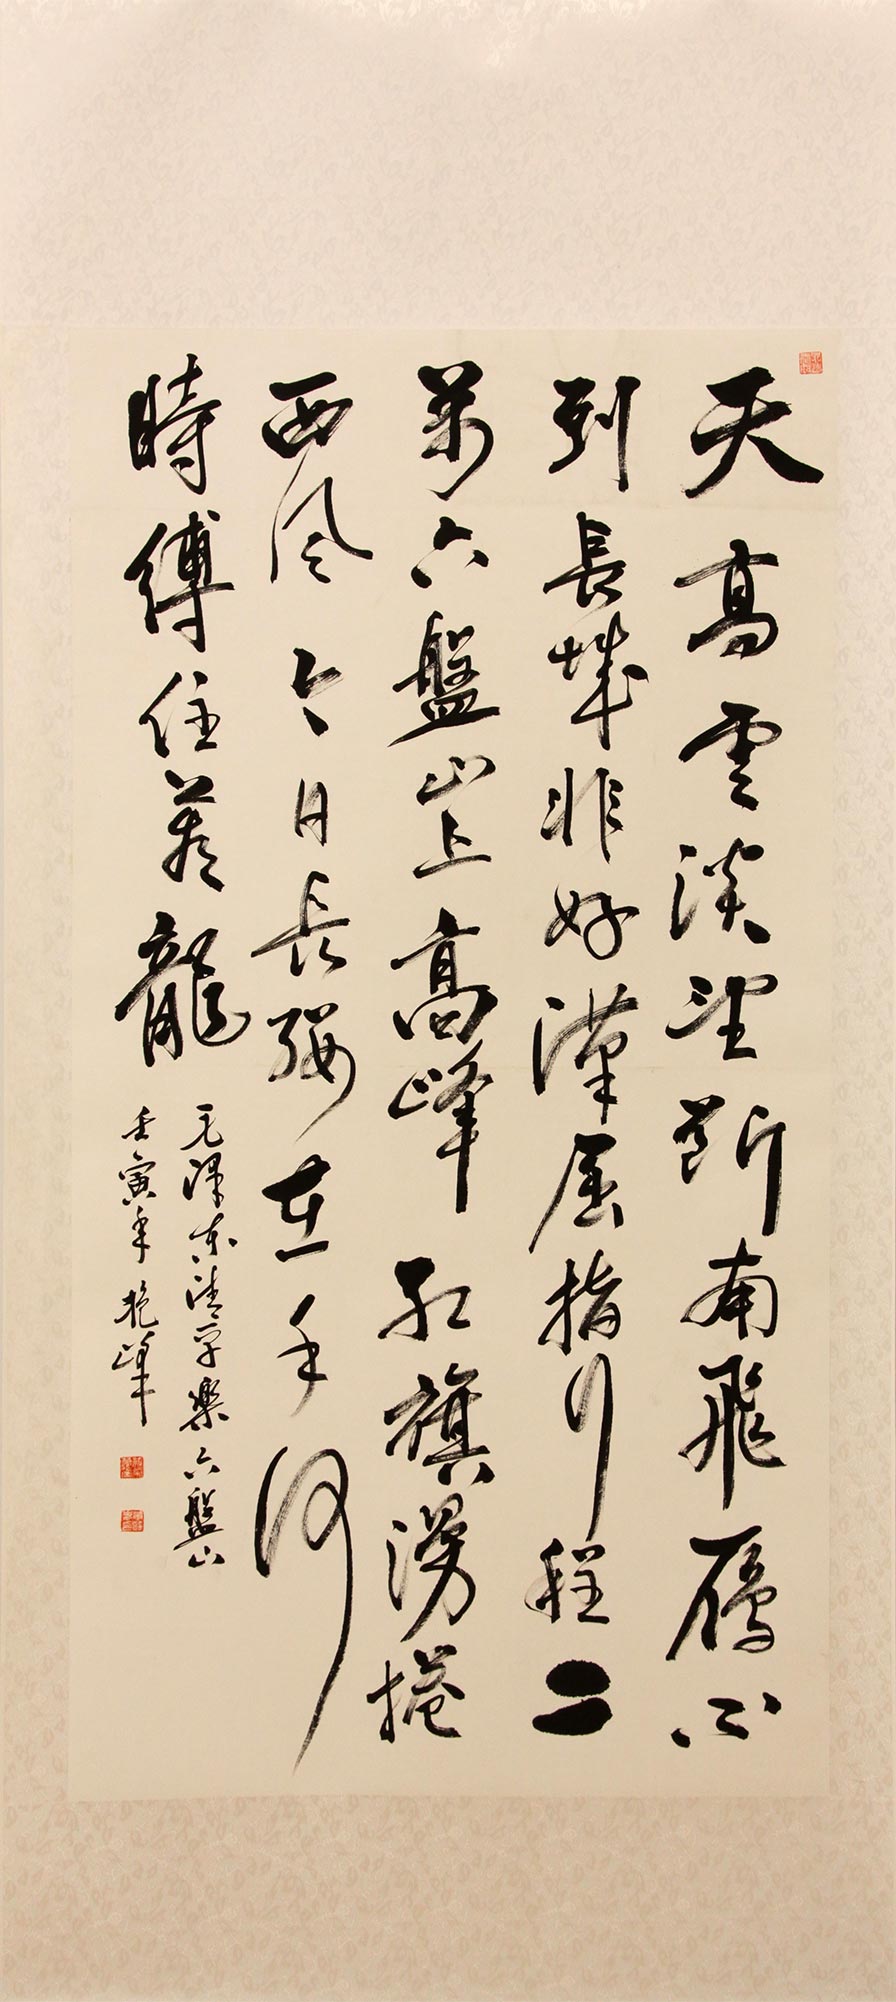 天高雲淡望斷南飛雁不
到長城非好漢屈指行程二
萬六盤山上高峰紅旗漫捲
西風今日長纓在手何
時縛住蒼龍
毛澤東清平樂六盤山
壬寅年峰